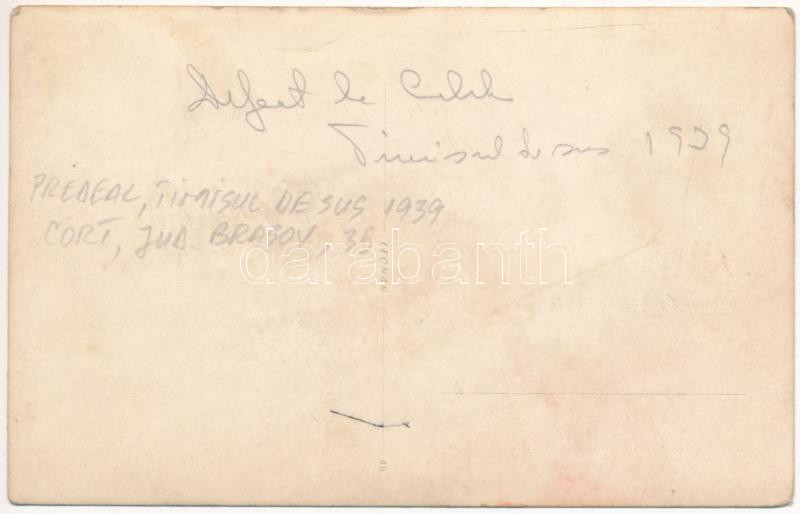 Defect la
Timisul de sus 1939
PREDEAL, TIMISUL DE SUS 1939
CORT, JUD. BRASOV, 35
LEONAR
darabanth
49